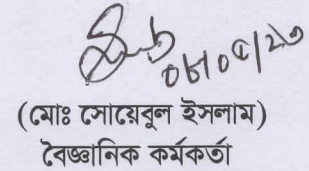 ০৮/০৫/২৩
(মোঃ সোয়েবুল ইসলাম)
বৈজ্ঞানিক কর্মকর্তা